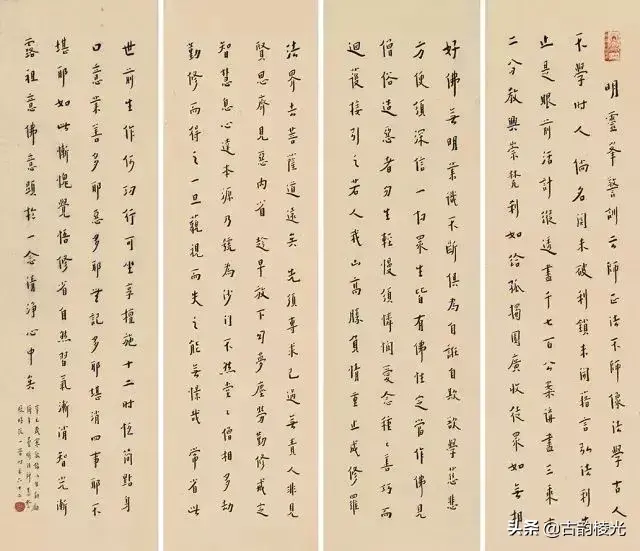 明靈峯警訓云師正法不師像法學古人
不學时人倘名闗未破利鎖未開藉言弘法利生
止是眼前活計縱透盡千七百公案講盡三乘十
二分教興崇梵刹如给孤獨園廣收徒眾如無相
好佛無明業識不斷俱為自誑自欺欲學慈悲
方便須深信一切眾生皆有佛性定當作佛見
僧俗造惡者勿生輕慢須憐憫愛念種〻善巧而
迴護接引之若人我山高勝負情重止成修羅
法界去菩薩道遠矣先須專求己過無責人非見
賢思齊見惡内省趁早放下勾夢塵勞勤修戒定
智慧息心達本源乃號為沙门不然堂〻僧相多劫
勤修而得之一旦藐視而失之能無懍哉常省此
世前生作何功行可坐享檀施十二时恆简點身
口意業善多耶惡多耶無記多耶堪消四事耶不
堪耶如此慚愧覺悟修省自然習氣漸消智光漸
露祖意佛意顯於一念清淨心中矣
头条 @古韵棱光